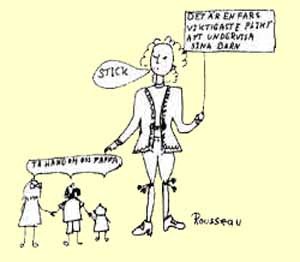 DET ÄR EN FARS
VIKTIGASTE PLIKT
ATT UNDERVISA
SINA BARN
STICK
TA HAND OM OSS PAPPA
Rousseau